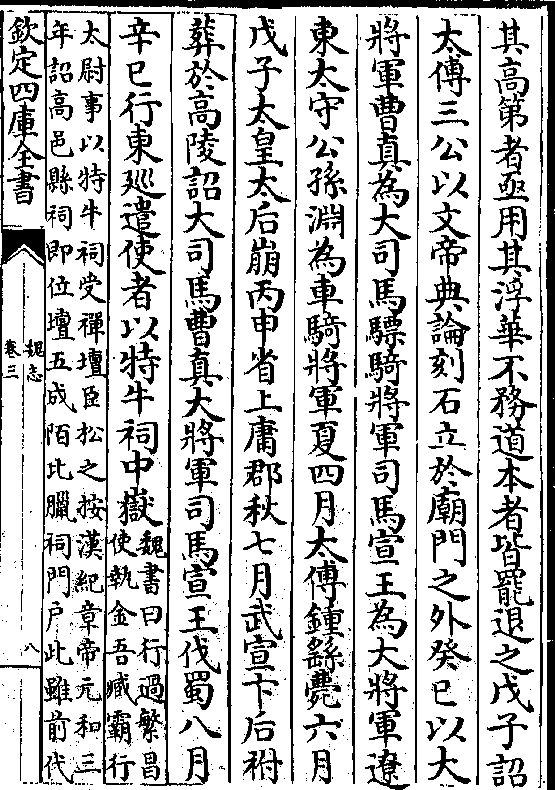 其高第者亟用其浮華不務道本者皆罷退之戊子詔
太傅三公以文帝典論刻石立於廟門之外癸巳以大
將軍曹真為大司馬驃騎將軍司馬宣王為大將軍遼
東大守公孫淵為車騎將軍夏四月太傅鍾繇薨六月
戊子太皇太后崩丙申省上庸郡秋七月武宣卞后祔
葬於高陵詔大司馬曹真大將軍司馬宣王伐蜀八月
辛巳行東廵遣使者以特牛祠中嶽
魏書曰行過繁昌
使執金吾臧霸行
太尉事以特牛祠受禪壇臣松之按漢紀章帝元和三
年詔高邑縣祠即位壇五成陌比臘祠門户此雖前代
欽定四庫全書
魏志
卷三
八